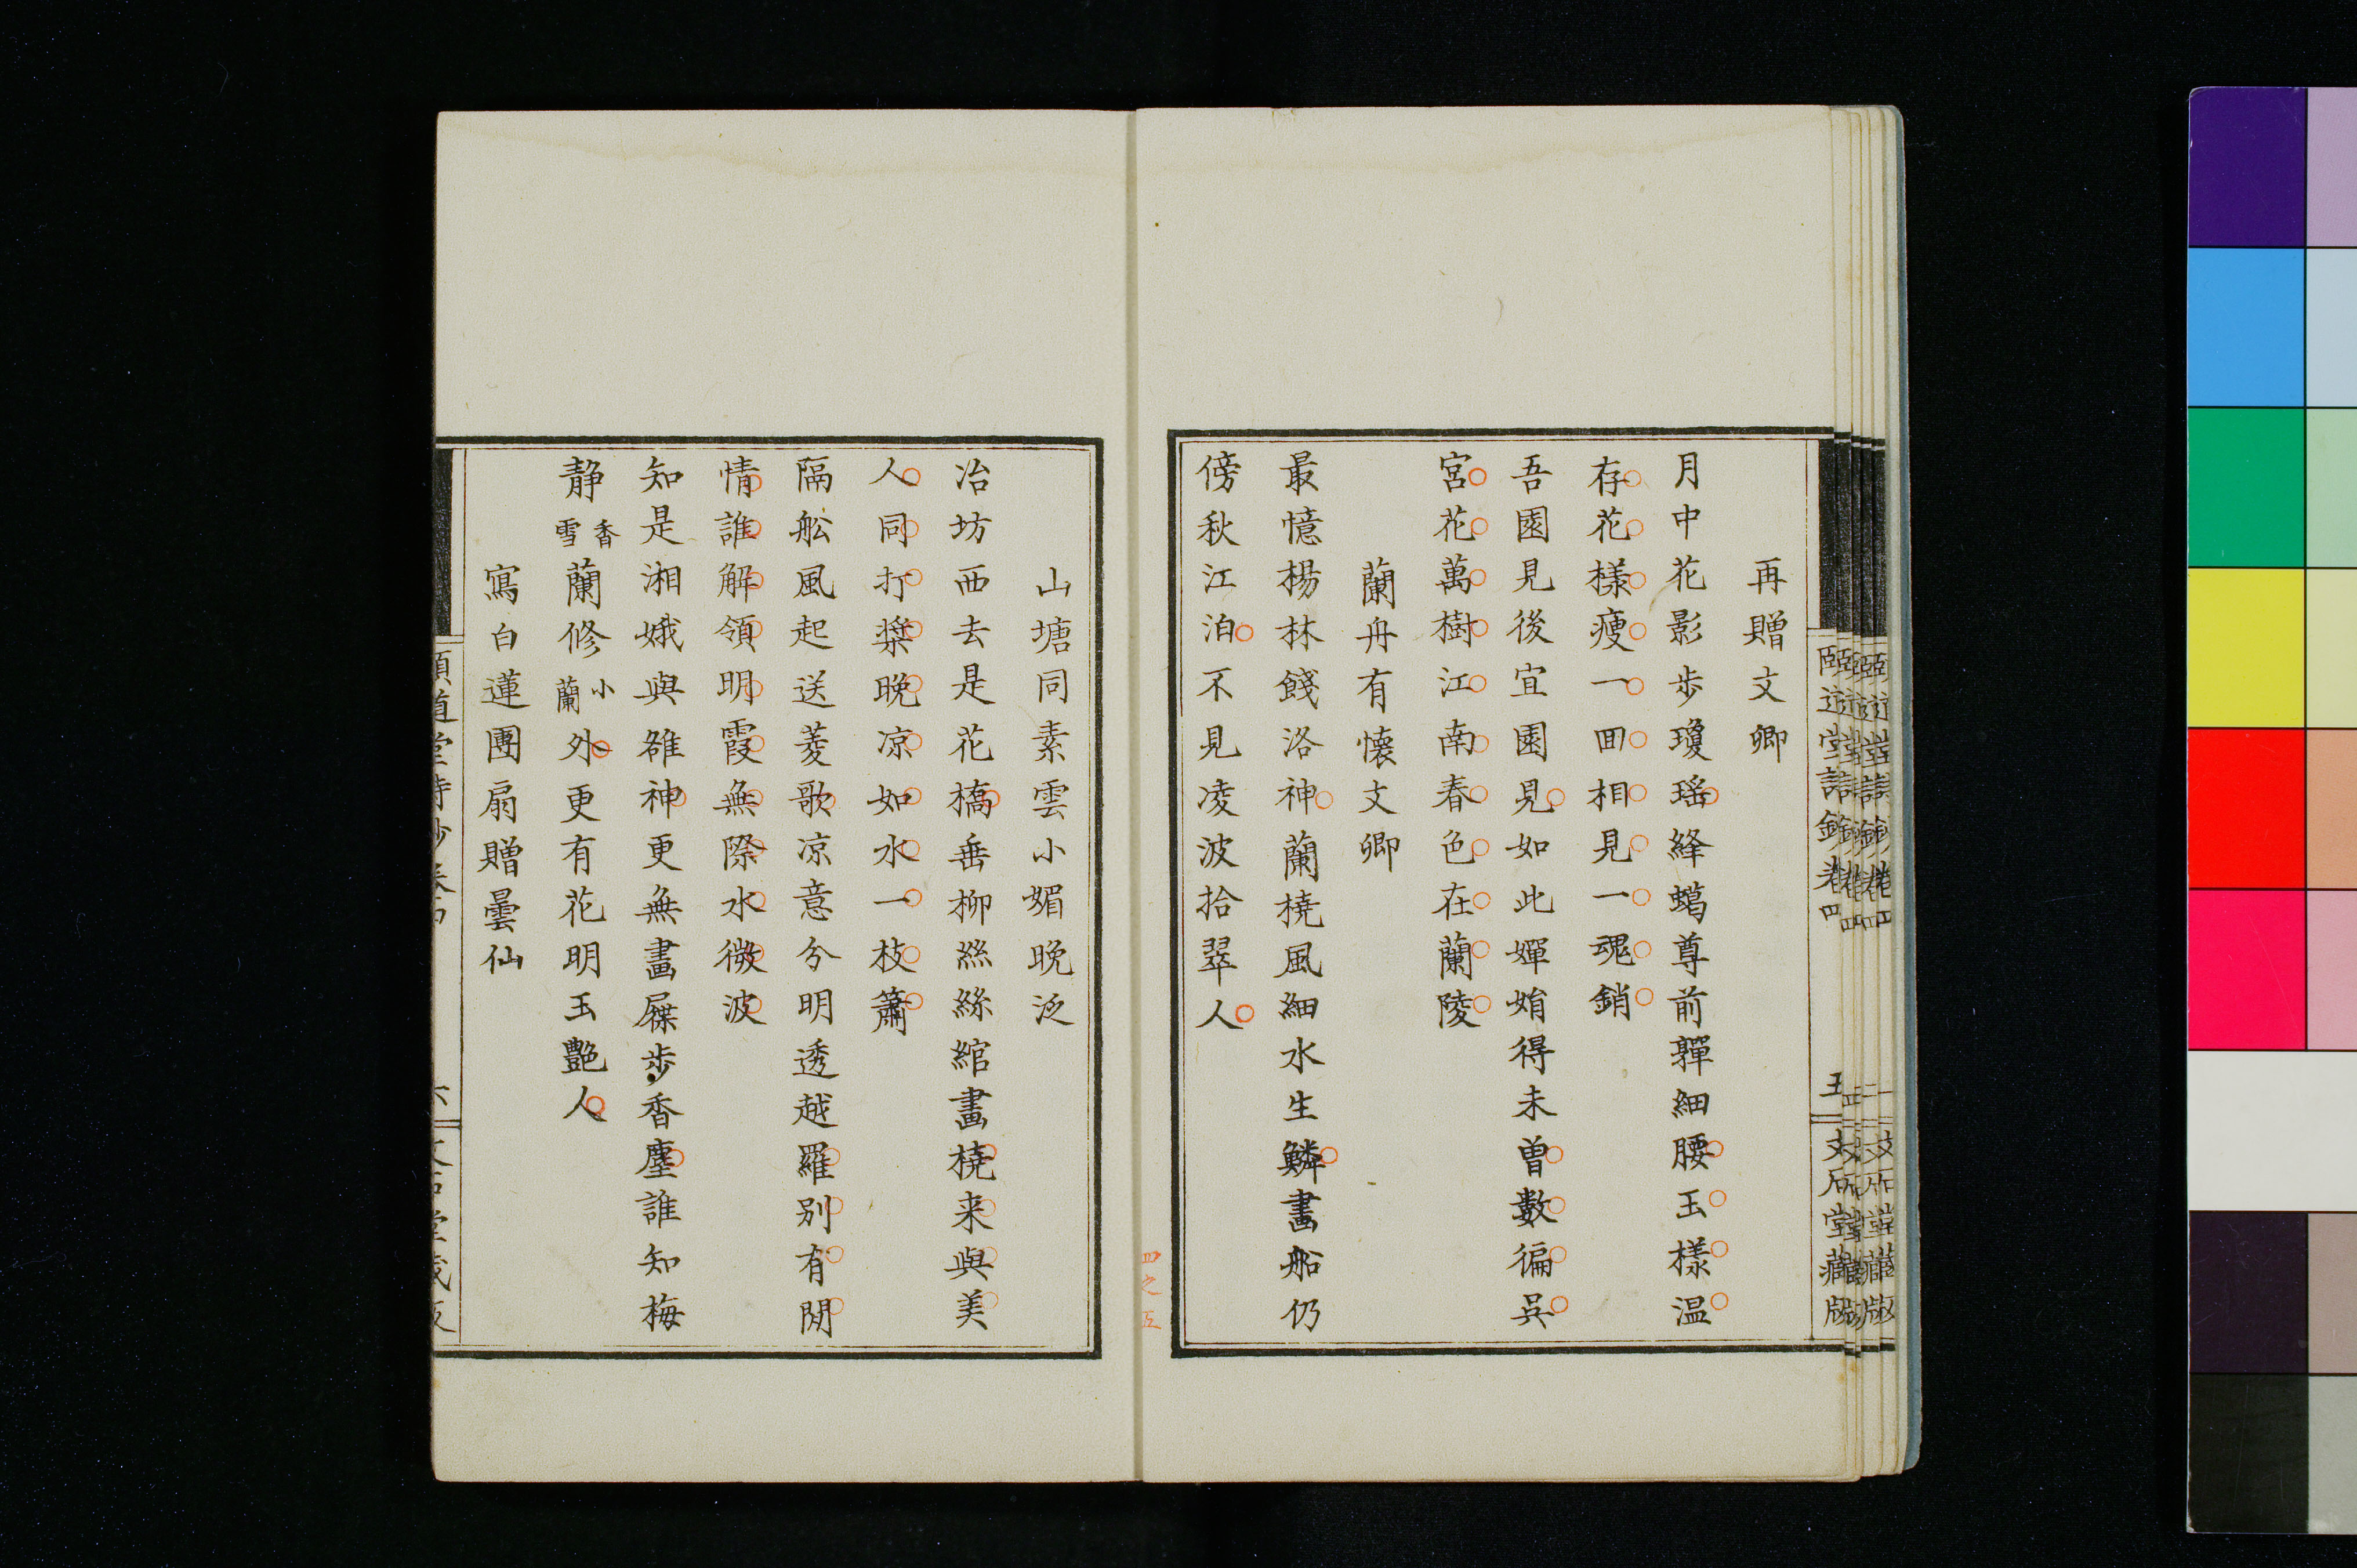 再贈文卿
月中花影步瓊瑤絳蠟尊前嚲細腰玉樣温
存花樣瘦一回相見一魂銷
吾園見後宜園見如此嬋娟得未曾數徧吳
宮花萬樹江南春色在蘭陵
蘭舟有懷文卿
最憶楊林餞洛神蘭橈風細水生鱗畫船仍
傍秋江泊不見凌波拾翠人
四之五
頤道堂詩鈔卷四
五
文石堂藏版
山塘同素雲小媚晚泛
冶坊西去是花橋垂柳絲絲綰畫橈来與美
人同打槳晚凉如水一枝簫
隔舩風起送菱歌凉意分明透越羅别有閒
情誰解領明霞無際水微波
知是湘娥與雒神更無畫屧步香塵誰知梅
靜香雪蘭修小蘭外更有花明玉艷人
寫白蓮團扇贈曇仙